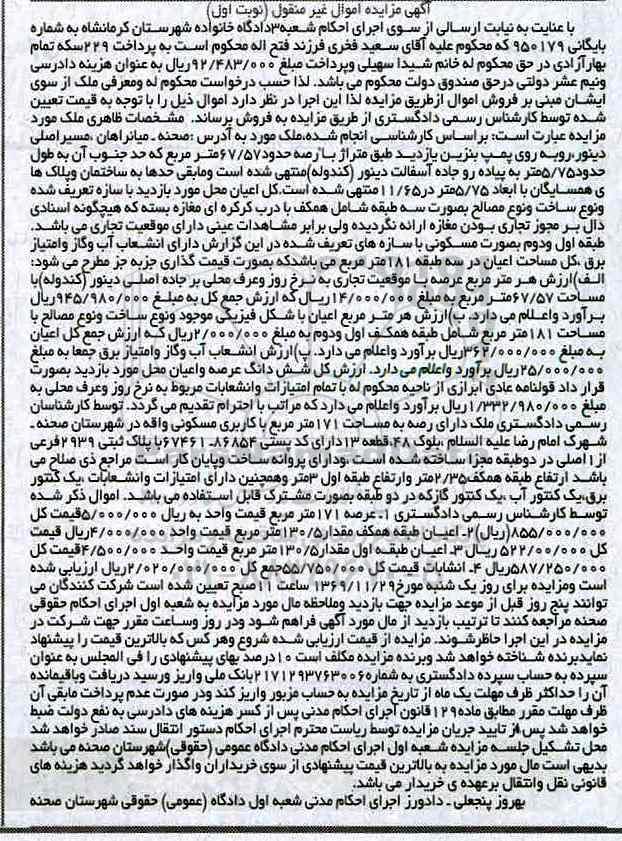 آگهی مزایده اموال غیر منقول (نوبت اول)
با عنایت به نیابت ارسالی از سوی اجرای احکام شعبه۳دادگاه خانواده شهرستان کرمانشاه به شماره
بایگانی ۹۵۰۱۷۹ که محکوم علیه آقای سعید فخری فرزند فتح اله محکوم است به پرداخت ۲۲۹سکه تمام
بهارآزادی در حق محکوم له خانم شیدا سهیلی وپرداخت مبلغ ۹۲/۴۸۳/۰۰۰ریال به عنوان هزینه دادرسی
ونیم عشر دولتی درحق صندوق دولت محکوم می باشد. لذا حسب درخواست محکوم له ومعرفی ملک از سوی
ایشان مبنی بر فروش اموال ازطریق مزایده لذا این اجرا در نظر دارد اموال ذیل را با توجه به قیمت تعیین
شده توسط کارشناس رسمی دادگستری از طریق مزایده به فروش برساند. مشخصات ظاهری ملک مورد
مزایده عبارت است: براساس کارشناسی انجام شده،ملک مورد به آدرس :صحنه ـ میانراهان ،مسیراصلی
دینور،روبه روی پمپ بنزین بازدید طبق متراژ با رصه حدود۶۷/۵۷متر مربع که حد جنوب آن به طول
حدود۵/۷۵متر به پیاده رو جاده آسفالت دینور (کندوله)منتهی شده است ومابقی حدها به ساختمان وپلاک ها
ی همسایگان با ابعاد ۵/۷۵متر در۱۱/۶۵منتهی شده است.کل اعیان محل مورد بازدید با سازه تعریف شده
ونوع ساخت ونوع مصالح بصورت سه طبقه شامل همکف با درب کرکره ای مغازه بسته که هیچگونه اسنادی
دال بر مجوز تجاری بودن مغازه ارائه نگردیده ولی برابر مشاهدات عینی دارای موقعیت تجاری می باشد.
طبقه اول ودوم بصورت مسکونی با سازه های تعریف شده در این گزارش دارای انشعاب آب وگاز وامتیاز
برق ،کل مساحت اعیان در سه طبقه ۱۸۱متر مربع می باشدکه بصورت قیمت گذاری جزبه جز مطرح می شود:
الف)ارزش هر متر مربع عرصه با موقعیت تجاری به نرخ روز وعرف محلی بر جاده اصلی دینور (کندوله)با
مساحت ۶۷/۵۷متر مربع به مبلغ ۱۴/۰۰۰/۰۰۰ریال که ارزش جمع کل به مبلغ ۹۴۵/۹۸۰/۰۰۰ریال
برآورد واعلام می دارد. ب)ارزش هر متر مربع اعیان با شکل فیزیکی موجود ونوع ساخت ونوع مصالح با
مساحت ۱۸۱متر مربع شامل طبقه همکف اول ودوم به مبلغ ۲/۰۰۰/۰۰۰ریال که ارزش جمع کل اعیان
به مبلغ ۳۶۲/۰۰۰/۰۰۰ریال برآورد واعلام می دارد. پ)ارزش انشعاب آب وگاز وامتیاز برق جمعا به مبلغ
۲۵/۰۰۰/۰۰۰ریال برآورد واعلام می دارد. ارزش کل شش دانگ عرصه واعیان محل مورد بازدید بصورت
قرار داد قولنامه عادی ابرازی از ناحیه محکوم له با تمام امتیازات وانشعابات مربوط به نرخ روز وعرف محلی به
مبلغ ۱/۳۳۲/۹۸۰/۰۰۰ریال برآورد واعلام می دارد که مراتب با احترام تقدیم می گردد. توسط کارشناسان
رسمی دادگستری ملک دارای رصه به مساحت ۱۷۱متر مربع با کاربری مسکونی واقه در شهرستان صحنه ـ
شهرک امام رضا علیه السلام ،بلوک ۴۸،قطعه ۱۳دارای کد پستی ۸۶۸۵۴ـ۶۷۴۶۱با پلاک ثبتی ۲۹۳۹فرعی
از۱اصلی در دوطبقه مجزا ساخته شده است ،ودارای پروانه ساخت وپایان کار است مراجع ذی صلاح می
باشد ارتفاع طبقه همکف۲/۳۵متر وارتفاع طبقه اول ۳متر وهمچنین دارای امتیازات وانشعابات ،یک کنتور
برق،یک کنتور آب ،یک کنتور گازکه در دو طبقه بصورت مشترک قابل استفاده می باشد. اموال ذکر شده
توسط کارشناس رسمی دادگستری ۱ـ عرصه ۱۷۱متر مربع قیمت واحد به ریال ۵/۰۰۰/۰۰۰قیمت کل
۸۵۵/۰۰۰/۰۰۰(ریال)۲ـ اعیان طبقه همکف مقدار۱۳۰/۵متر مربع قیمت واحد ۴/۰۰۰/۰۰۰ریال قیمت
کل ۵۲۲/۰۰۰/۰۰۰ ریال ۳ـ اعیان طبقه اول مقدار۱۳۰/۵متر مربع قیمت واحد ۴/۵۰۰/۰۰۰قیمت کل
۵۸۷/۲۵۰/۰۰۰ریال ۴ـ انشابات قیمت کل ۵۵/۷۵۰/۰۰۰جمع کل ۲/۰۲۰/۰۰۰/۰۰۰ریال ارزیابی شده
است ومزایده برای روز یک شنبه مورخ۱۳۶۹/۱۱/۲۹ ساعت ۱۱صبح تعیین شده است شرکت کنندگان می
توانند پنج روز قبل از موعد مزایده جهت بازدید وملاحظه مال مورد مزایده به شعبه اول اجرای احکام حقوقی
صحنه مراجعه کنند تا ترتیب بازدید از مال مورد آگهی فراهم شود ودر روز وساعت مقرر جهت شرکت در
مزایده در این اجرا حاظرشوند. مزایده از قیمت ارزیابی شده شروع وهر کس که بالاترین قیمت را پیشنهاد
نمایدبرنده شناخته خواهد شد وبرنده مزایده مکلف است ۱۰درصد بهای پیشنهادی را فی المجلس به عنوان
سپرده به حساب سپرده دادگستری به شماره۲۱۷۱۲۹۳۷۶۳۰۰۶بانک ملی واریز ورسید دریافت وباقیمانده
آن را حداکثر ظرف مهلت یک ماه از تاریخ مزایده به حساب مزبور واریز کند ودر صورت عدم پرداخت مابقی آن
ظرف مهلت مقرر مطابق ماده۱۲۹قانون اجرای احکام مدنی پس از کسر هزینه های دادرسی به نفع دولت ضبط
خواهد شد پس از تایید جریان مزایده توسط ریاست محترم اجرای احکام دستور انتقال سند صادر خواهد شد
محل تشکیل جلسه مزایده شعبه اول اجرای احکام مدنی دادگاه عمومی (حقوقی)شهرستان صحنه می باشد
بدیهی است مال مورد مزایده به بالاترین قیمت پیشنهادی از سوی خریداران واگذار خواهد گردید هزینه های
قانونی نقل وانتقال برعهده ی خریدار می باشد.
بهروز پنجعلی ـ دادورز اجرای احکام مدنی شعبه اول دادگاه (عمومی) حقوقی شهرستان صحنه